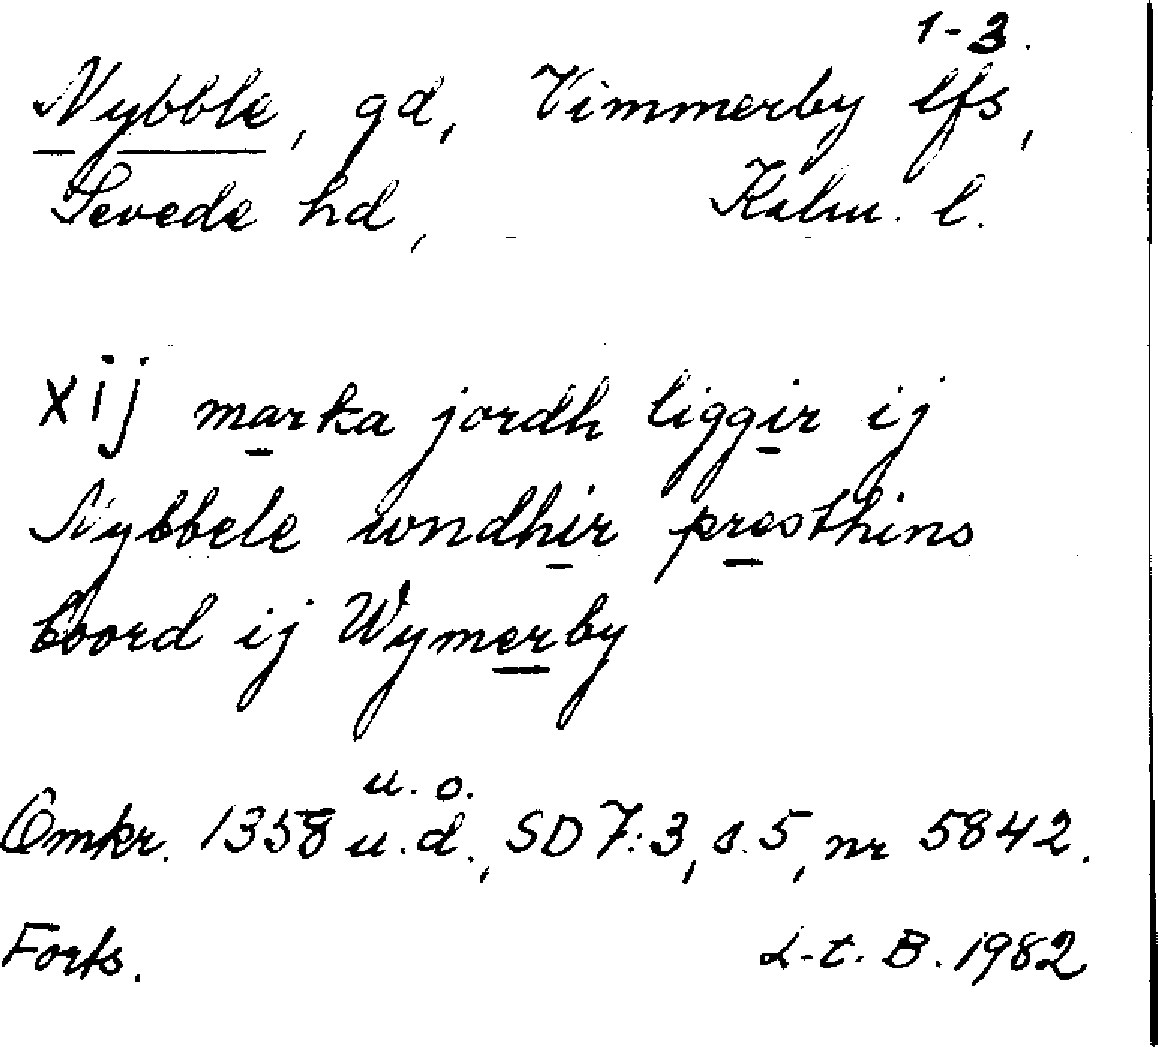 1-3.
Nybble, gd, Vimmerby lfs,
Sevede hd, Kalm. l.
xij marka jordh liggir ij
Nybbele wndhir presthins
boord ij Wymerby
u. o.
Omkr. 1358 u. d., SD 7:3, s. 5, nr 5842.
Forts. L-t. B. 1982